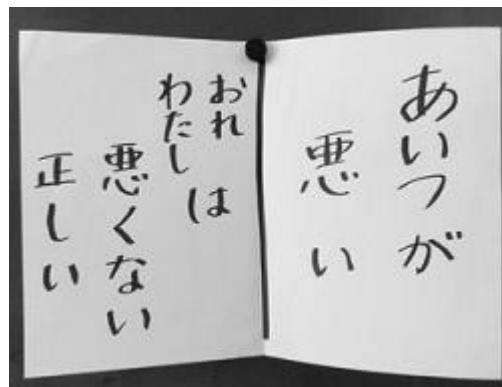 あいつが
悪い
おれ
わたし
は
悪くない
正しい